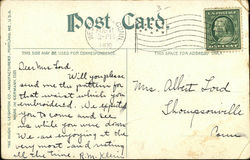 Post Card
THIS SIDE MAY BE USED FOR CORRESPONDENCE.
THIS SPACE FOR ADDRESS
Dear Mrs. Lord,
Will you please
send me the pattern for
that waist which you
embroidered. We
you to come and see
us while you were down.
We are enjoying it the
very most and
all the time. R.M. Klein
Mrs. Albert Lord
Thompsonville
Conn